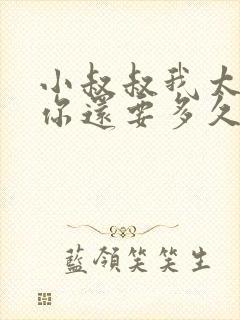 小叔叔我太
你還要多久
藍領笑笑生